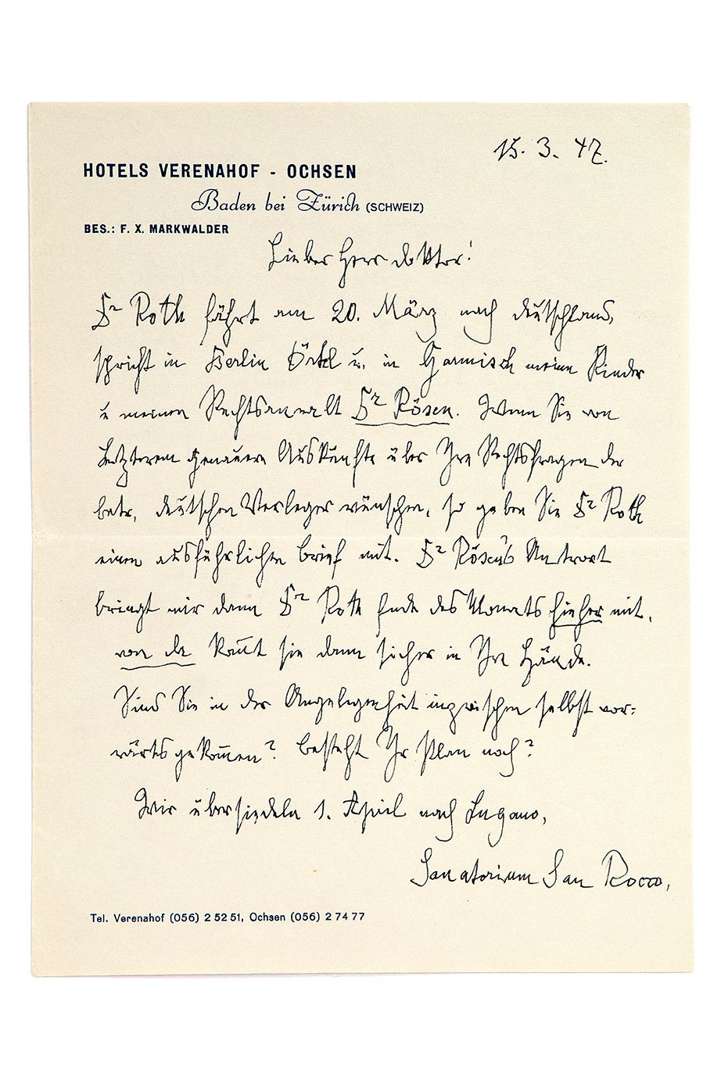 15. 3. 47.
HOTELS VERENAHOF - OCHSEN
Baden bei Zürich (SCHWEIZ)
BES.: F. X. MARKWALDER
Lieber Herr doktor!
Dr Roth fährt am 20. März nach deutschland,
spricht in Berlin Örtel u. in Garmisch meine Kinder
u meinen Rechtsanwalt Dr Rösen. Wenn Sie von
Letzterem genauere Auskünfte über Ihre Rechtsfragen der
betr. deutschen Verleger wünschen, so geben Sie Dr Roth
einen ausführlichen brief mit. Dr Rösen's Antwort
bringt mir dann Dr Roth Ende des Monats hieher mit,
von da kom̄t sie dann sicher in Ihre Hände.
Sind Sie in der Angelegenheit inzwischen selbst vor:
wärts gekom̄en? besteht Ihr Plan noch?
Wir übersiedeln 1. April nach Lugano,
Sanatorium San Rocco,
Tel. Verenahof (056) 2 52 51, Ochsen (056) 2 74 77